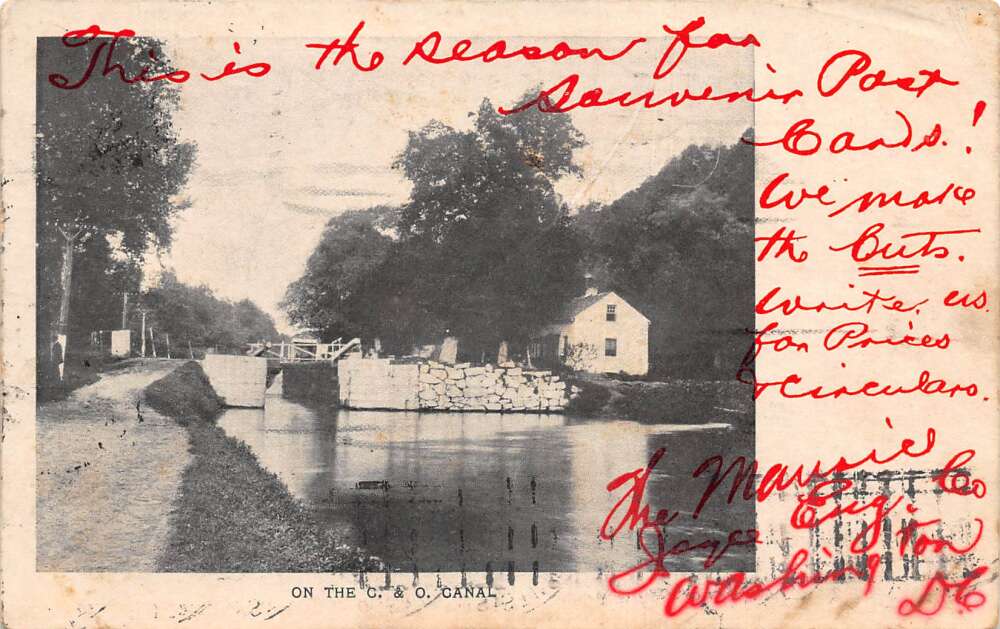 This is the season for
Souvenir Post
Cards.!
We make
the Cuts.
Write us
for Prices
& circulars.
The Maurice
Joyce Eng. Co
Washington
D.C
ON THE C. & O. CANAL